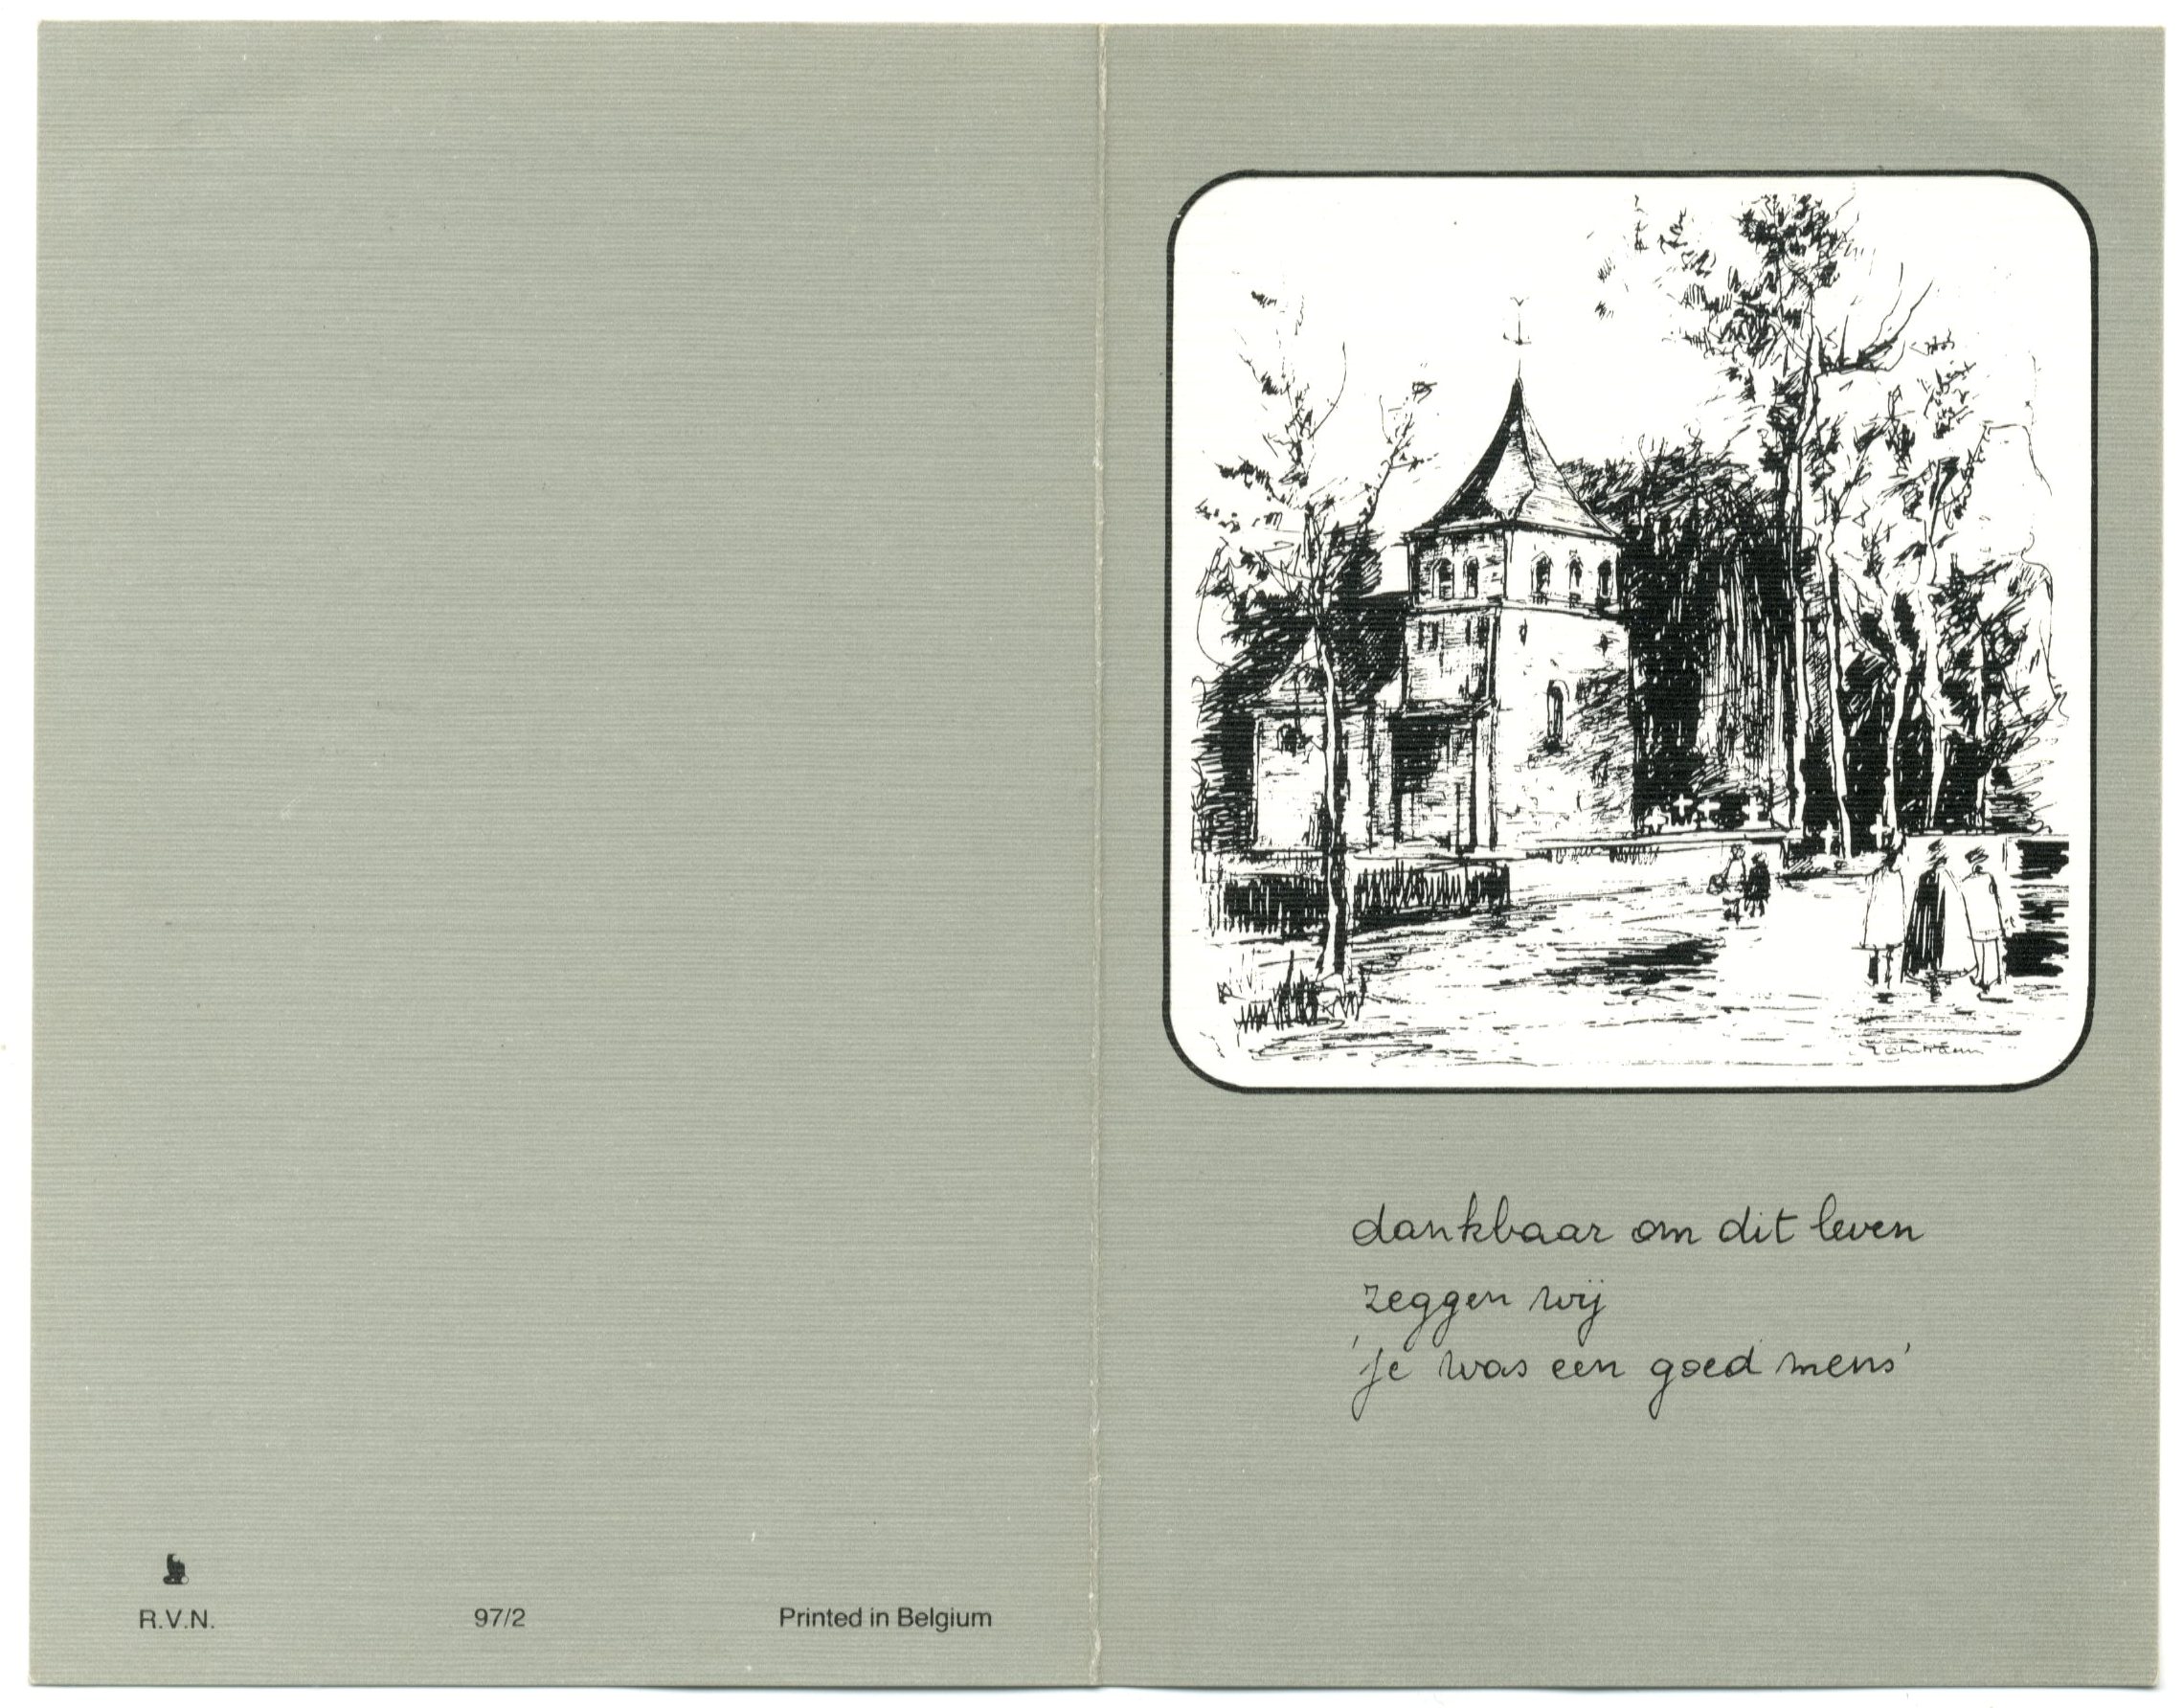 dankbaar om dit leven
zeggen wij
'je was een goed mens'
R.V.N. 97/2 Printed in Belgium